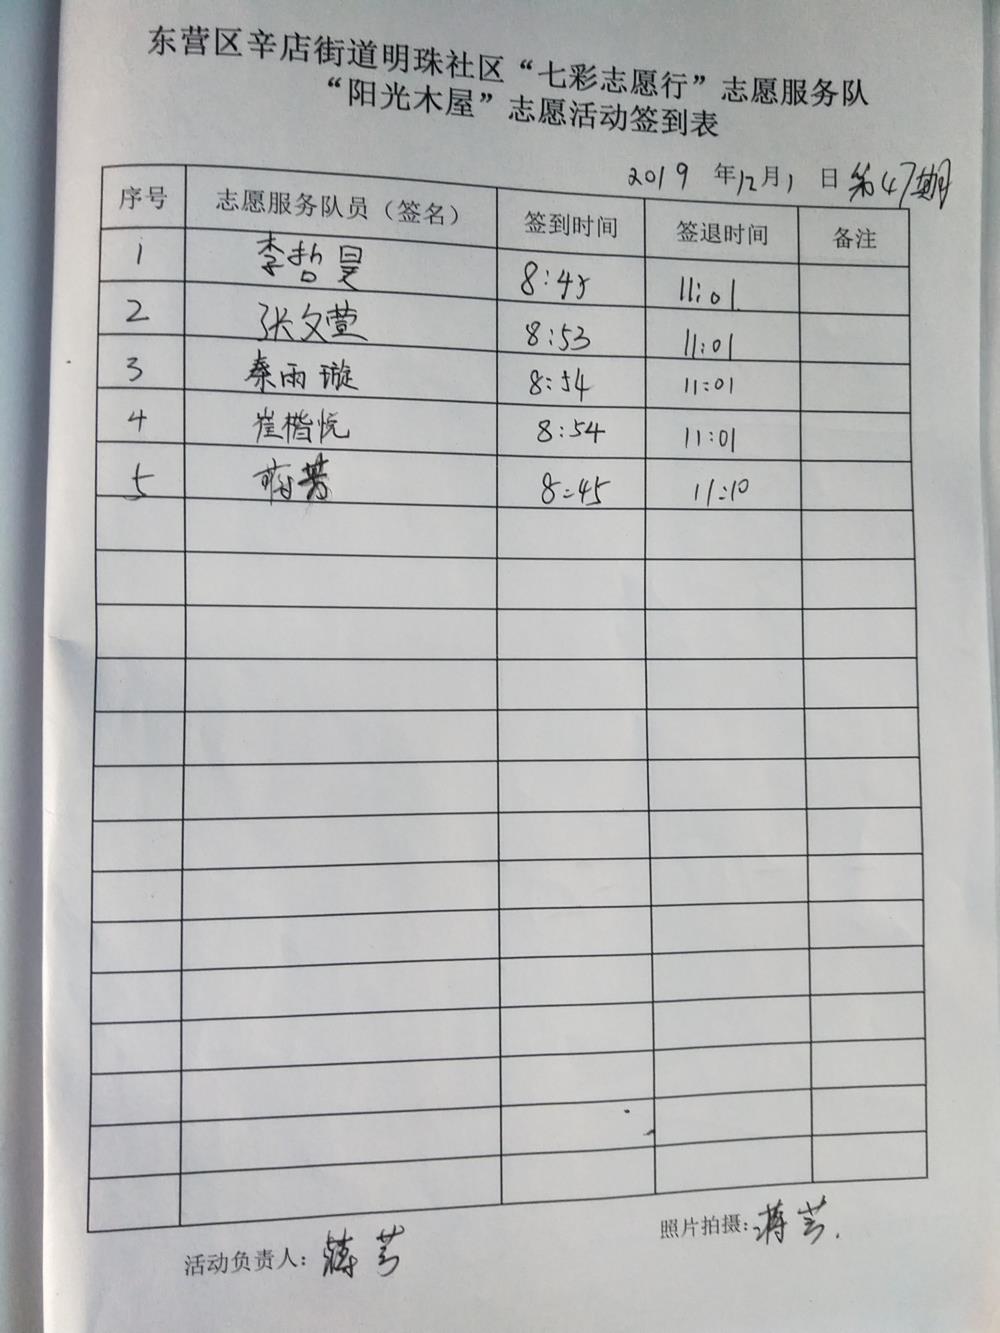 东营区辛店街道明珠社区“七彩志愿行”志愿服务队
“阳光木屋”志愿活动签到表
2019 年12月1 日 第47期
序号 志愿服务队员（签名） 签到时间 签退时间 备注
1 李哲昊 8:45 11:01
2 张文萱 8:53 11:01
3 秦雨璇 8:54 11:01
4 崔楷悦 8:54 11:01
5 蒋芳 8:45 11:10
活动负责人：蒋芳
照片拍摄：蒋芳